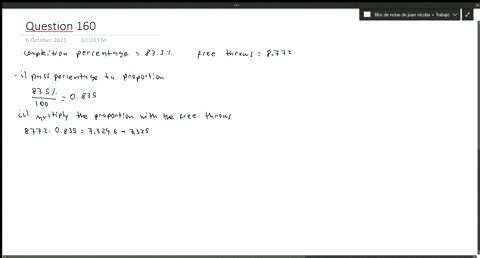 Bloc de notas de juan nicolas » Trabajo
Question 160
6 October 2021 10:03 PM
completion percentage = 83.5% free throws = 8,772
· i) pass percentage to proportion
83.5% / 100 = 0.835
ii) multiply the proportion with the free throws
8772 · 0.835 = 7,324.6 → 7,325